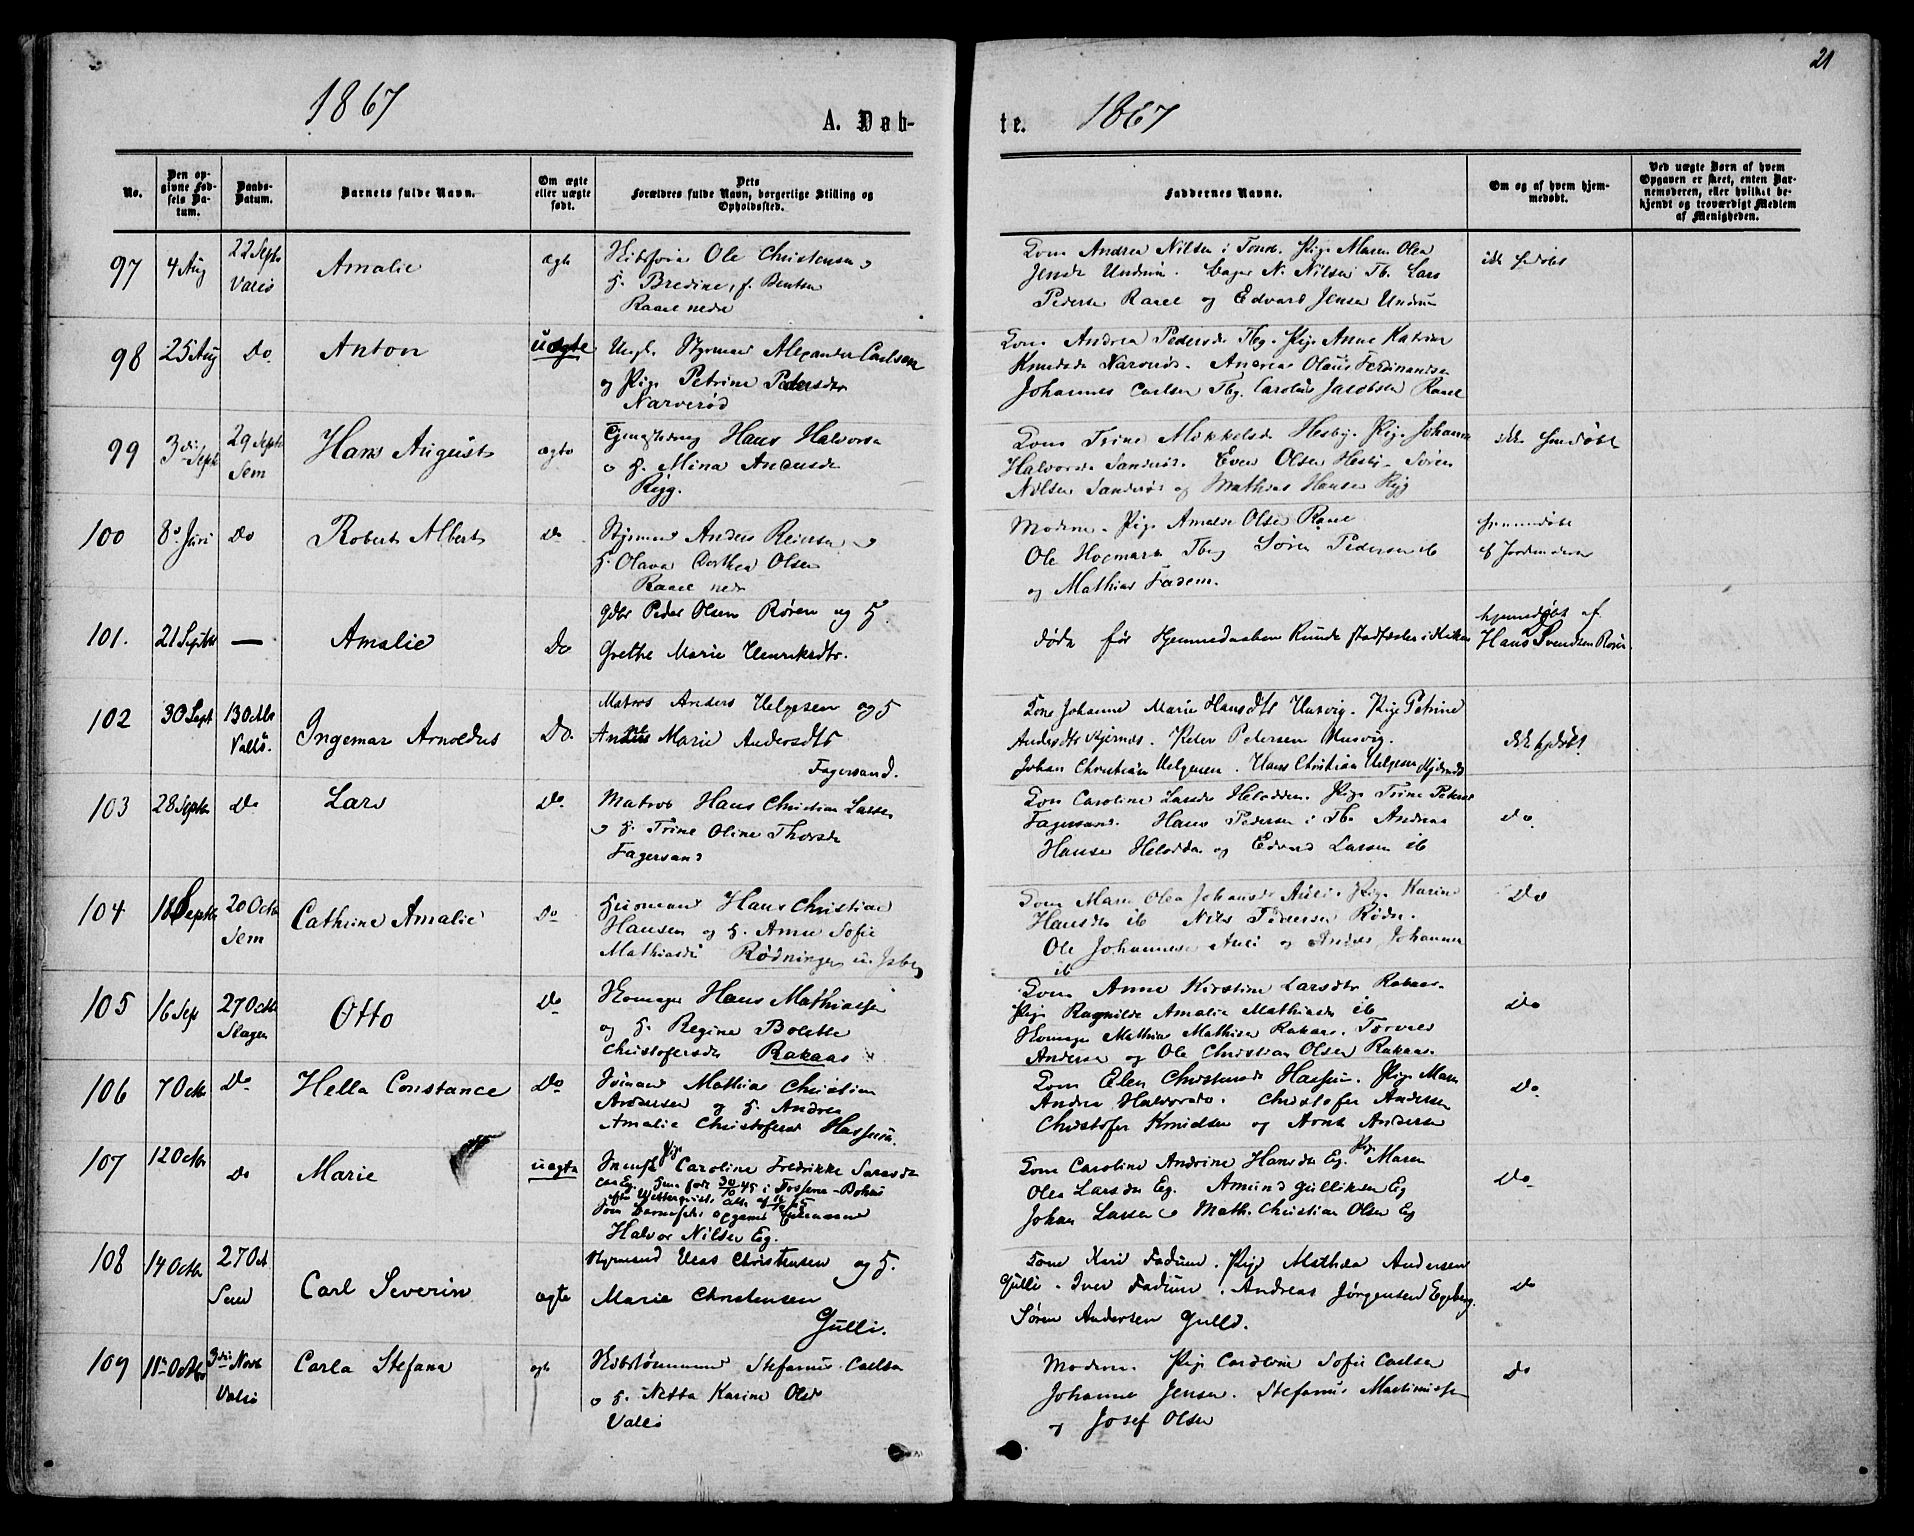 21
1867
A. Døb-
te.
1867
No.
Den op-
givne Fød-
sels Da-
tum.
Daabs-
Datum.
Barnets fulde Navn.
Om ægte
eller uægte
født.
Dets
Forældres fulde Navn, borgerlige Stilling og
Opholdssted.
Faddernes Navne.
Om og af hvem hjem-
medøbt.
Ved uægte Børn af hvem
Opgaven er skeet, enten Bar-
nemoderen, eller hvilket be-
kjendt og troværdigt Medlem
af Menigheden.
97
4 Aug
22 Septr
Valø
Amalie
ægte
Ole Christensen
H. Bredine, f. Bentsen
Raael nedre
Kone Andrea Nilsen i Pige Maren Olea
Jensdr Undrum. Bager N. Nilsen Tb. Lars
Pedersen Raael og Edvard Jensen Undrum
98
25 Aug
Do
Anton
uægte
Ungk. Styrmand Alexander Carlsen
og Pige Petrine Pedersdtr
Narverød
Kone Andrea Pedersdr Tbg. Pige Anne Katrine
Knudsdr Narverød. Andreas Olaus Ferdinandsen
Johannes Carlsen Tbg. Carolus Jacobsen Raael
99
3die Septr
29 Septr
Sem
Hans August
ægte
Hans Halvorsen
o H. Mina Andersdr
Rygg.
Kone Trine Mikkelsdr Hesby. Pige Johanne
Halvorsdr Sanderød. Even Olsen Hesby. Søren
Nilsen Sanderød og Mathias Hansen Rygg
ikke hmdøbt
100
8de Juni
Do
Robert Albert
Do
Styrmand Anders Reiersen o
H. Olava Dorthea Olsen
Raael nedre
Moderen. Pige Amalie Olsen Raael
Ole Hogmark Tbg Søren Pedersen ib
og Mathias Fadum.
hjemmedøbt
af Jordmoderen
101.
21 Septbr
—
Amalie
Do
Gdbr Peder Olsen Røren og H
Grethe Marie Henriksdtr.
døde før Hjemmedaaben kunde stadfæstes i Kirken
hjemmedøbt af
Hans Svendsen Røren.
102
30 Sept
13 Octbr
Vallø.
Ingemar Arnoldus
Do.
Matros Anders Helgesen og H
Marie Andersdtr
Fagersand.
Kone Johanne Marie Hansdtr Husvig. Pige Petrine
Andersdtr Kjernæs. Peter Pedersen Husvig.
Johan Christian Helgesen. Hans Christian Helgesen
ikke hjdøbt
103
28 Septr
Do
Lars
Do.
Matros Hans Christian Larsen
o H. Trine Oline Thorsdr
Fagersand
Kone Caroline Larsdr Pige Trine
Fagersand. Hans Pedersen i Tb. Andreas
Hansen og Edvard Larsen ib
Do.
104
18 Septr
20 Octbr
Sem
Cathrine Amalie
Do
Husmand Hans Christian
Hansen og H. Anne Sofie
Mathiasdr Rødningen
Kone Maren Olea Johansdr Auli. Pige Karine
Hansdr ib Nils Pedersen
Ole Johannesen Auli og Anders Johannesen
ib
Do
105
16 Sep
27 Octbr
Slagen
Otto
Do
Skomager Hans Mathiassen
og H. Regine Bolette
Christofersdr Rakaas
Kone Anne Kirstine Larsdtr Rakaas.
Pige Ragnilde Amalie Mathiasdr ib
Skomager Mathias Mathisen Rakaas. Torvald
Andersen og Ole Christian Olsen Rakaas.
Do
106
7 Octbr
Do
Hella Constance
Do
Sømand Mathias Christian
Andersen og H. Andrea
Amalie Christofersdr Hassum.
Kone Elen Christensdr Hassum. Pige Maren
Andrea Halvorsdr. Christofer Andersen
Christofer Knudsen og Arnt Andersen
Do
107
12 Octbr
Do
Marie
uægte
Svensk Pige Caroline Fredrikke
Eg. Hun født 30/10 45 i Tossene - Bohus
Halvor Nilsen Eg.
Kone Caroline Andrine Hansdr Eg. Pige Maren
Olea Larsdr Eg. Amund Gulliksen Eg
Johan Larsen o Math. Christian Olsen Eg
Do
108
14 Octbr
27 Oct
Sem
Carl Severin
ægte
Styrmand Christensen og H.
Marie Christensen
Gulli.
Kone Kari Fadum. Pige Mathea Andersen
Gulli. Iver Fadum. Andreas Jørgensen Egeberg.
Søren Andersen Gulli.
Do
109
11te Octbr
3die Novbr
Valø
Carla Stefana
ægte
Stefanus Carlsen
o H. Netta Karine Olsdr
Vallø
Moderen. Pige Caroline Sofie Carlsen
Johanne Jensen. Stefanus Martiniussen
og Josef Olsen
Do